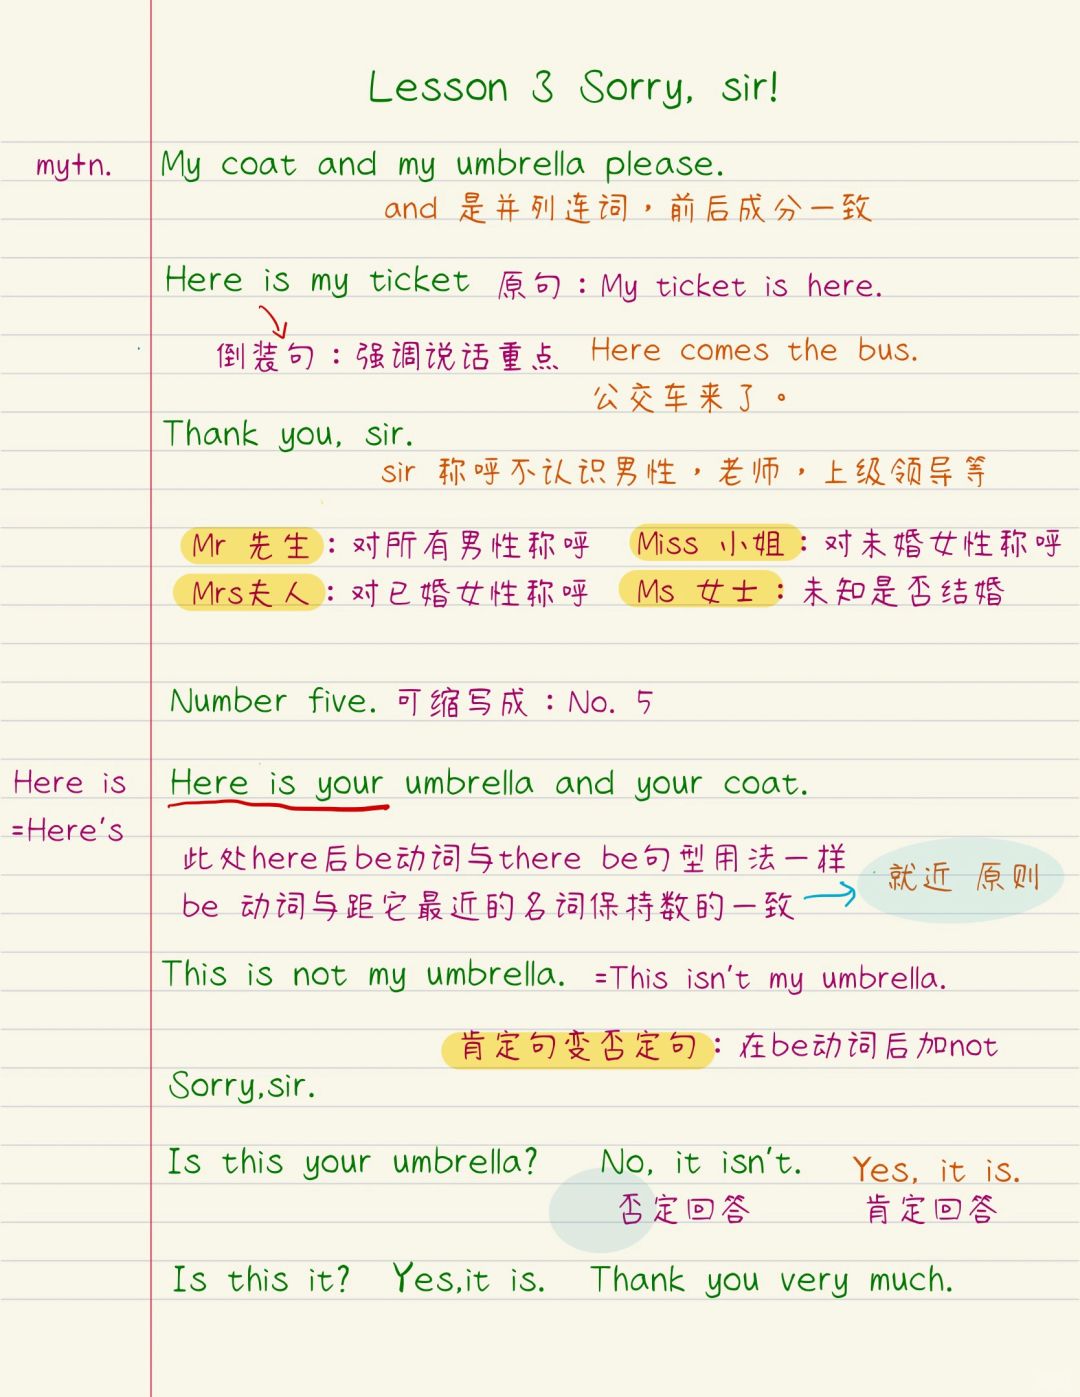 Lesson 3 Sorry, sir!
my+n. My coat and my umbrella please.
and 是并列连词，前后成分一致
Here is my ticket 原句：My ticket is here.
倒装句：强调说话重点 Here comes the bus.
公交车来了。
Thank you, sir.
sir 称呼不认识男性，老师，上级领导等
Mr 先生：对所有男性称呼 Miss 小姐：对未婚女性称呼
Mrs夫人：对已婚女性称呼 Ms 女士：未知是否结婚
Number five. 可缩写成：No. 5
Here is Here is your umbrella and your coat.
=Here's
此处here后be动词与there be句型用法一样
就近 原则
be 动词与距它最近的名词保持数的一致
This is not my umbrella. =This isn't my umbrella.
肯定句变否定句：在be动词后加not
Sorry,sir.
Is this your umbrella? No, it isn't. Yes, it is.
否定回答 肯定回答
Is this it? Yes,it is. Thank you very much.